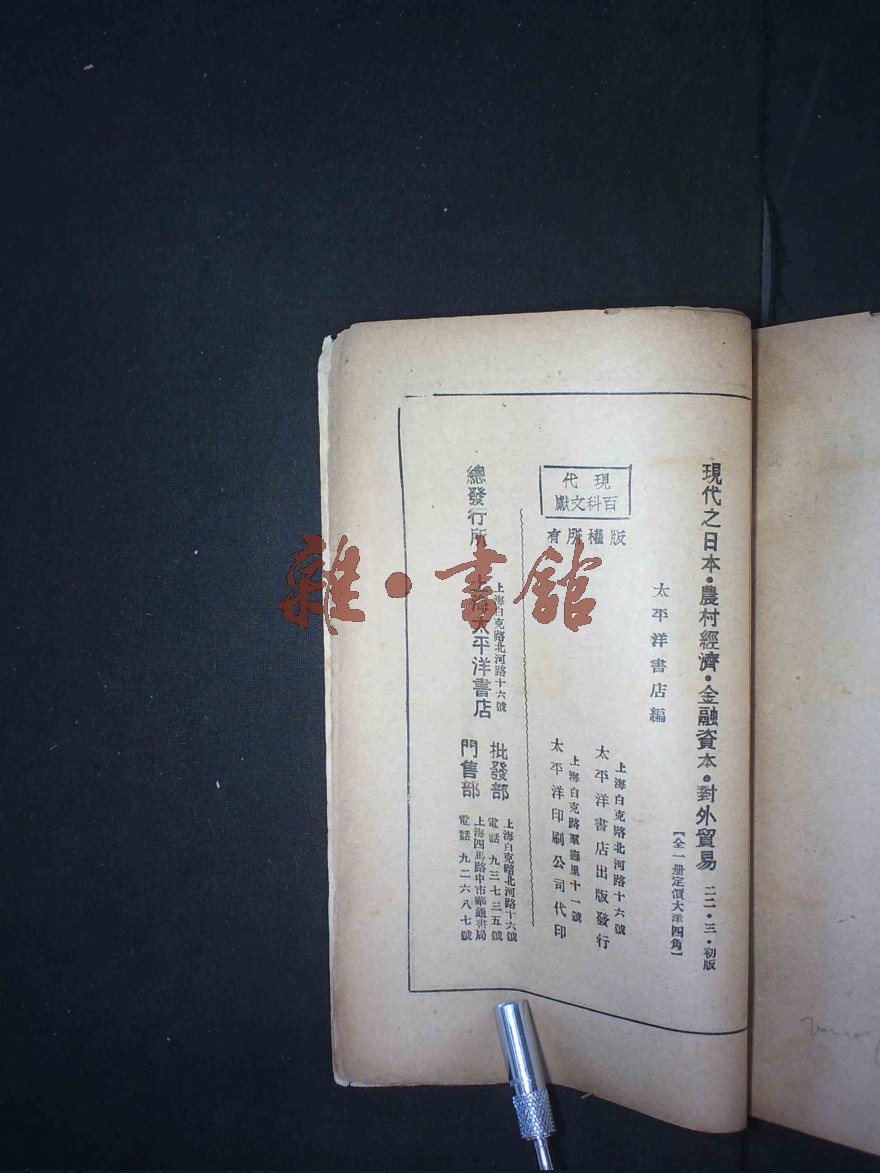 現代之日本・農村經濟・金融資本・對外貿易
二二・三・初版
【全一册定價大洋四角】
太平洋書店編
現代
百科文獻
版權所有
上海白克路北河路十六號
太平洋書店出版發行
上海白克路羣壽里十一號
太平洋印刷公司代印
總發行所
上海白克路北河路十六號
上海太平洋書店
批發部
上海白克路北河路十六號
電話九三七三五號
門售部
上海四馬路中市
電話九二六八七號
雜・書館